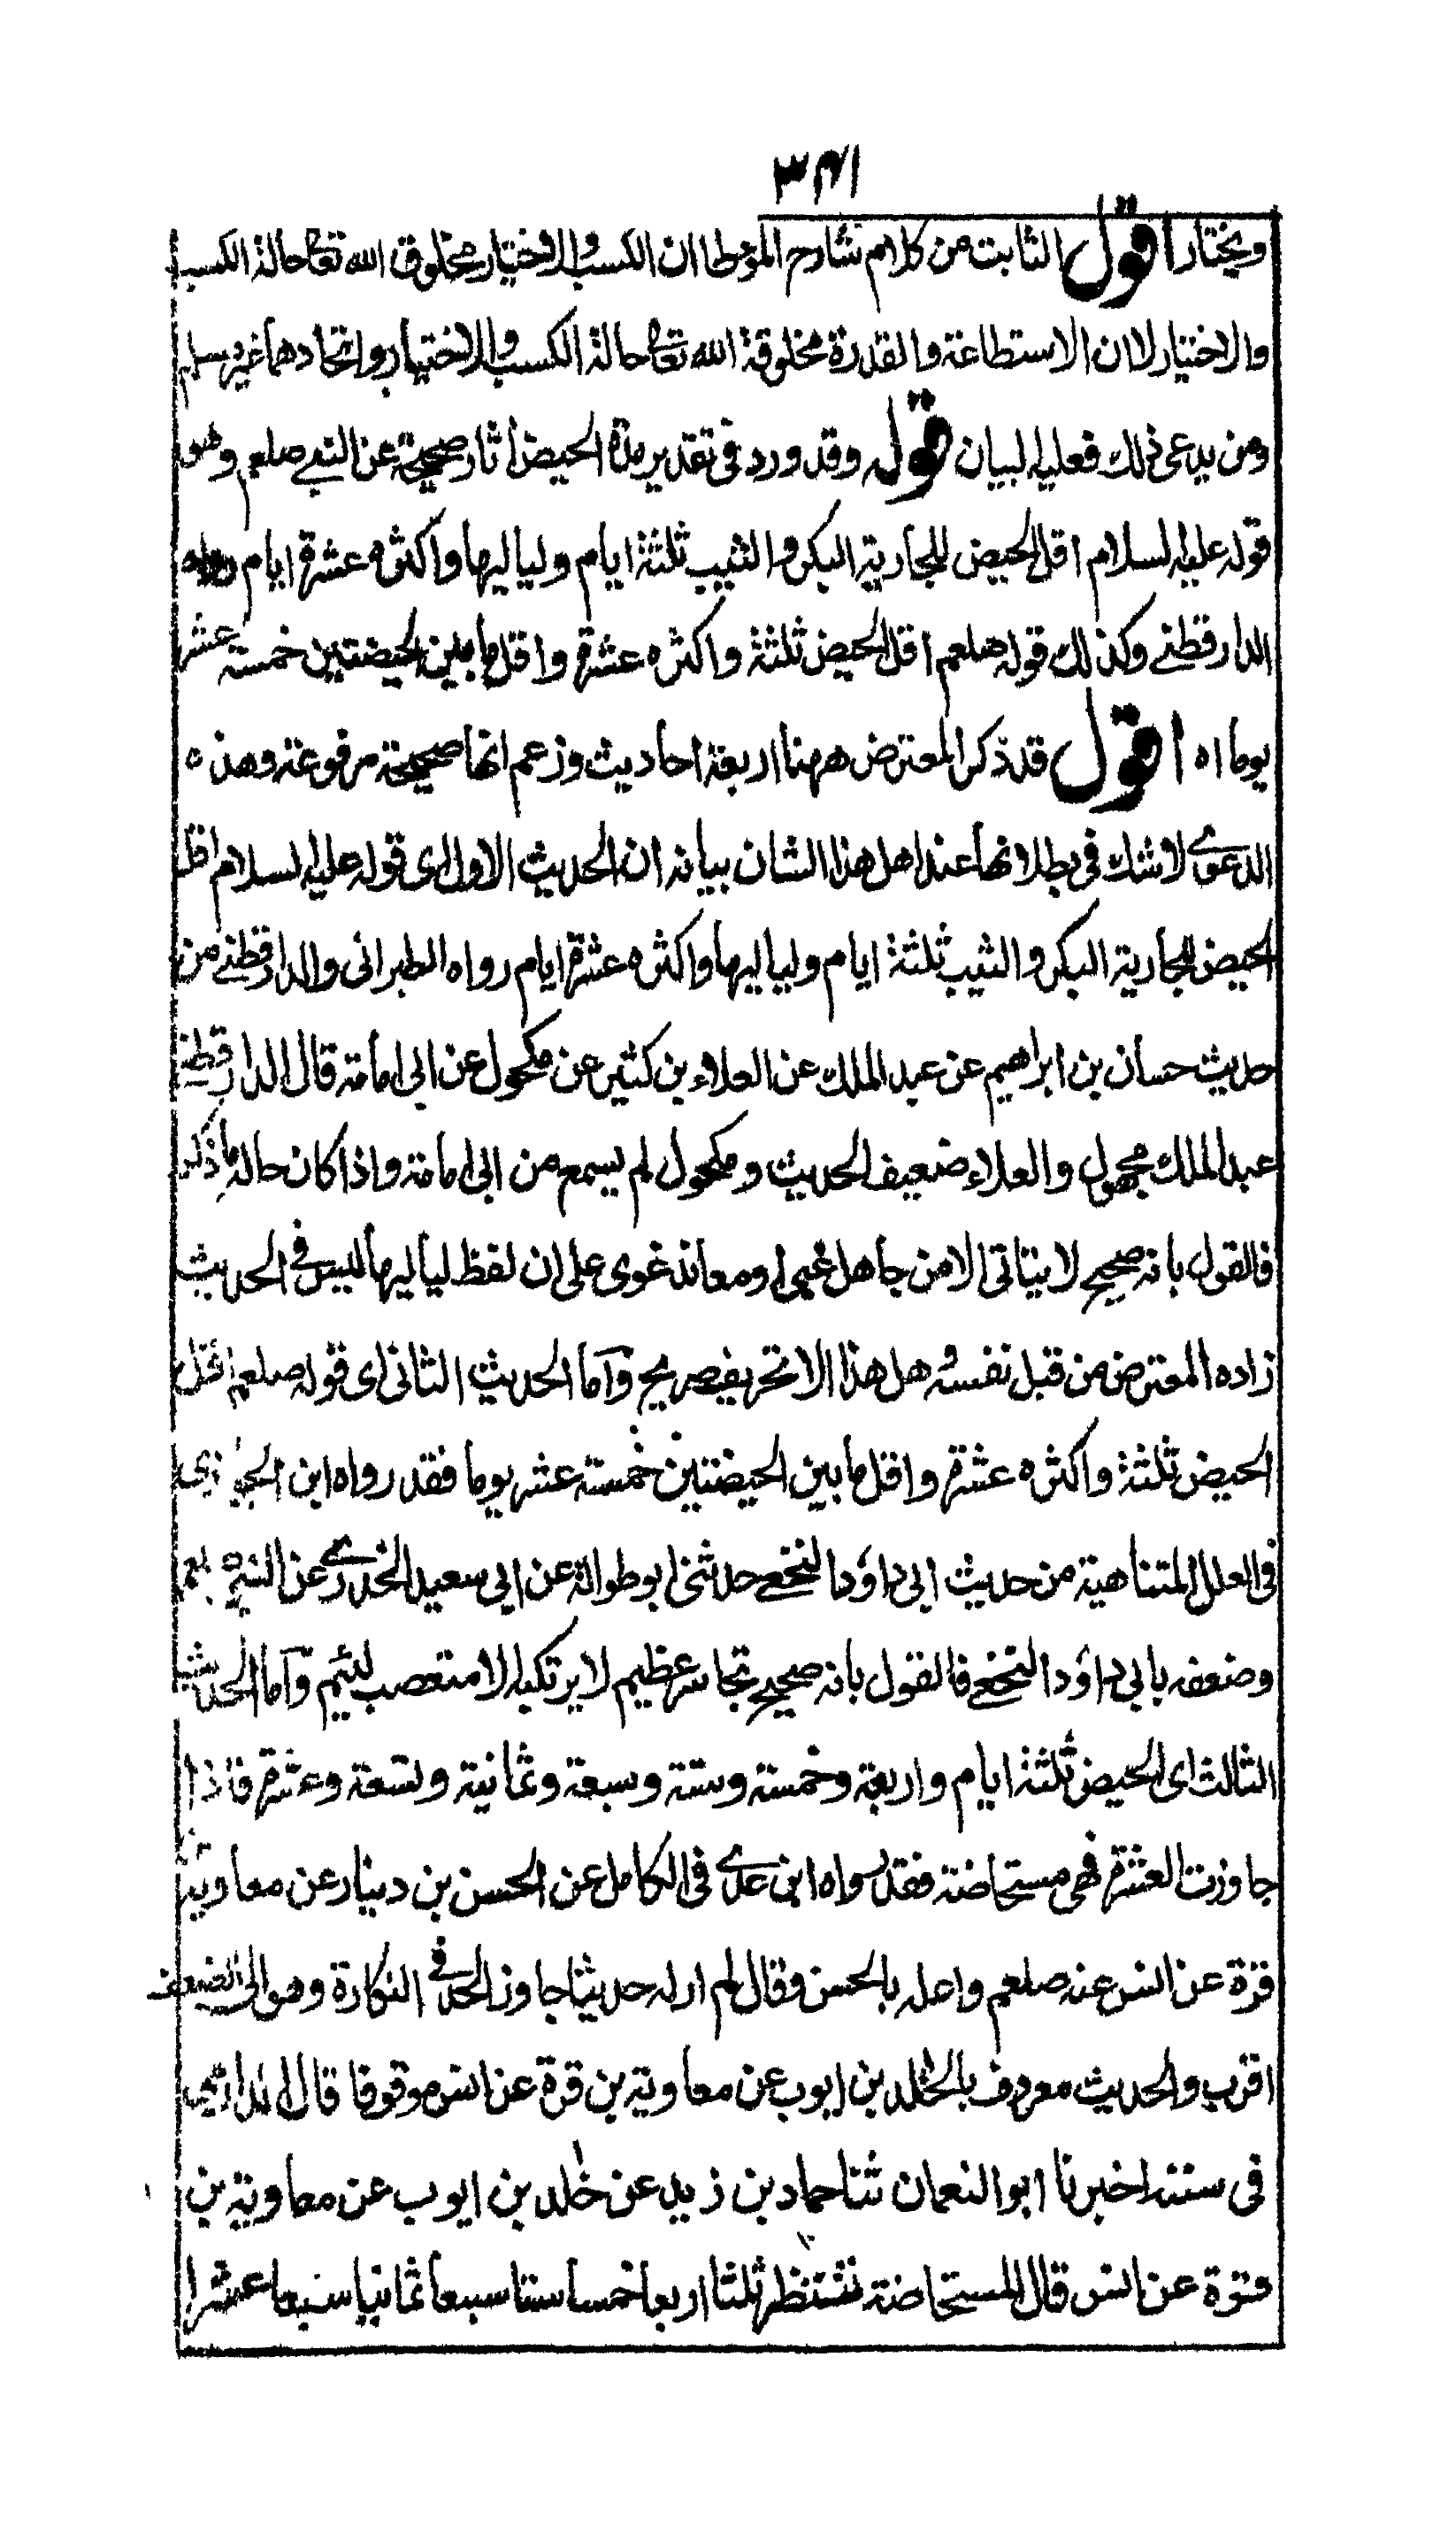 ۳۴۱
ويختار اقول الثابت من كلام شارح المؤطا ان الكسب والاختيار مخلوق الله تعالى حالة الكسب
والاختيار لا ان الاستطاعة والقدرة مخلوقة الله تعالى حالة الكسب والاختيار واتحادهما غير مسلم
ومن يدعى ذلك فعليه البيان قوله وقد ورد فى تقدير مدة الحيض آثار صحيحة عن النبى صلعم وهو
قوله عليه السلام اقل الحيض للجارية البكر والثيب ثلثة ايام ولياليها واكثره عشرة ايام رواه
الدارقطنى وكذلك قوله صلعم اقل الحيض ثلثة واكثره عشرة واقل ما بين الحيضتين خمسة عشر
يوما اه اقول قد ذكر المعترض ههنا اربعة احاديث وزعم انها صحيحة مرفوعة وهذه
الدعوى لا شك فى بطلانها عند اهل هذا الشان بيانه ان الحديث الاول اى قوله عليه السلام اقل
الحيض للجارية البكر والثيب ثلثة ايام ولياليها واكثره عشرة ايام رواه الطبرانى والدارقطنى من
حديث حسان بن ابراهيم عن عبد الملك عن العلاء بن كثير عن مكحول عن ابى امامة قال الدارقطنى
عبد الملك مجهول والعلاء ضعيف الحديث ومكحول لم يسمع من ابى امامة واذا كان حاله ما ذكر
فالقول بانه صحيح لا يتاتى الا من جاهل غبى او معاند غوى على ان لفظ لياليها ليس فى الحديث
زاده المعترض من قبل نفسه و هل هذا الا تحريف صريح وآما الحديث الثانى اى قوله صلعم اقل
الحيض ثلثة واكثره عشرة واقل ما بين الحيضتين خمسة عشر يوما فقد رواه ابن الجوزى
فى العلل المتناهية من حديث ابى داؤد النخعى حدثنى ابو طوالة عن ابى سعيد الخدرى عن النبى صلعم
وضعفه بابى داؤد النخعى فالقول بانه صحيح تجاسر عظيم لا يرتكبه الا متعصب لئيم وآما الحديث
الثالث اى الحيض ثلثة ايام واربعة وخمسة وستة وسبعة وثمانية وتسعة وعشرة فاذا
جاوزت العشرة فهى مستحاضة فقد رواه ابن عدى فى الكامل عن الحسن بن دينار عن معاوية بن
قرة عن انس عنه صلعم واعله بالحسن وقال لم ار له حديثا جاوز الحد فى النكارة وهو الى الضعف
اقرب والحديث معروف بالخلد بن ايوب عن معاوية بن قرة عن انس موقوفا قال الدارمى
فى سننه اخبرنا ابو النعمان ثنا حماد بن زيد عن خلد بن ايوب عن معاوية بن
قرة عن انس قال المستحاضة تنتظر ثلثا اربعا خمسا ستا سبعا ثمانيا تسعا عشرا